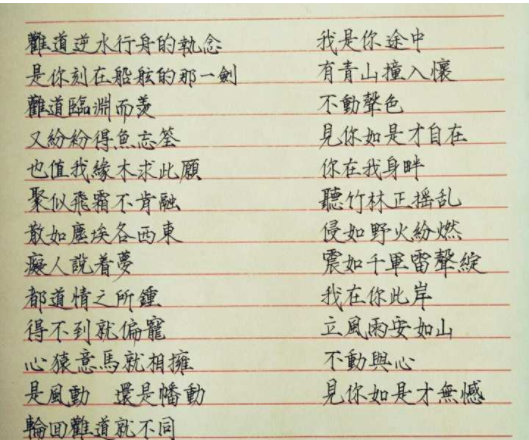 難道逆水行舟的執念
是你刻在船舷的那一劍
難道臨淵而羨
又紛紛得魚忘筌
也值我緣木求此願
聚似飛霜不肯融
散如塵埃各西東
癡人說着夢
都道情之所鍾
得不到就偏寵
心猿意馬就相擁
是風動 還是幡動
輪回難道就不同
我是你途中
有青山撞入懷
不動聲色
見你如是才自在
你在我身畔
聽竹林正摇乱
侵如野火紛燃
震如千軍雷聲綻
我在你此岸
立風雨安如山
不動與心
見你如是才無憾